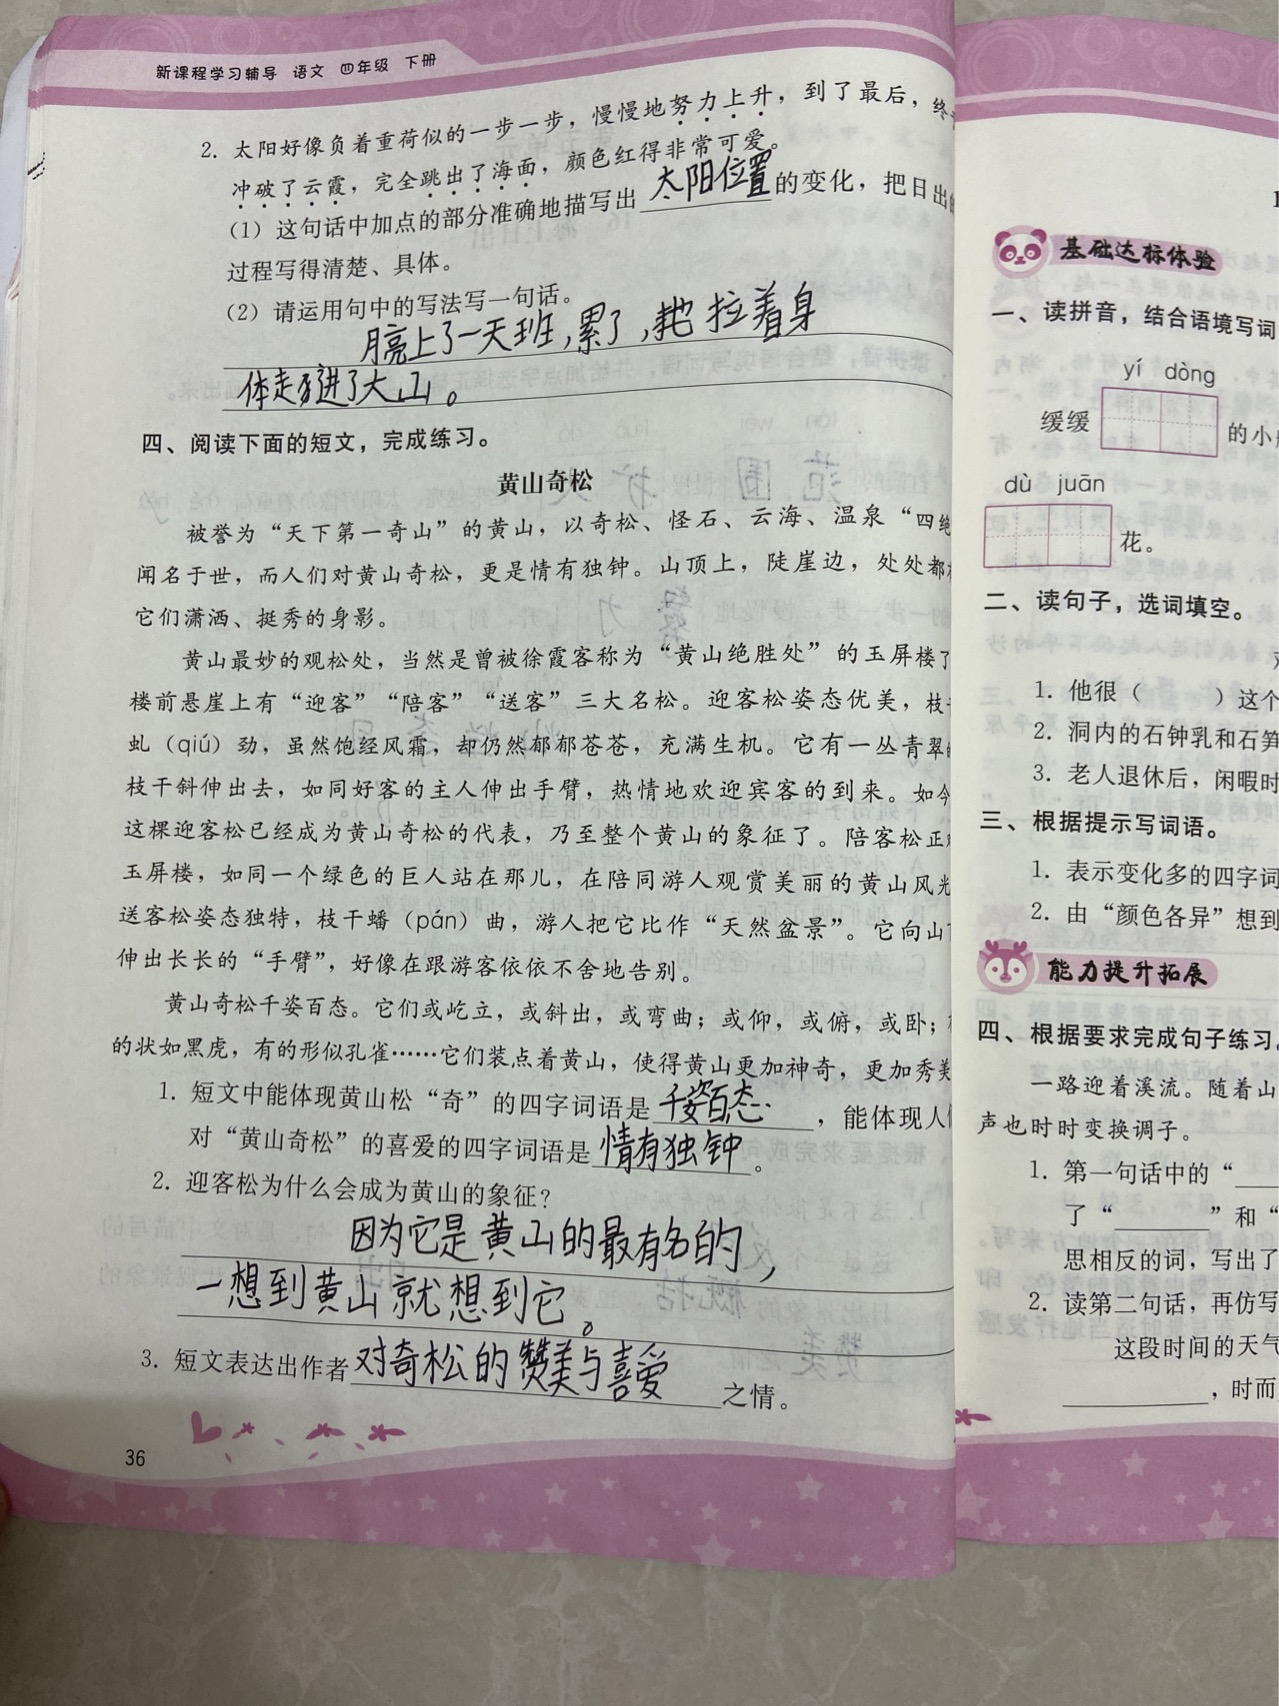 新课程学习辅导 语文 四年级 下册
2. 太阳好像负着重荷似的一步一步，慢慢地努力上升，到了最后，终
冲破了云霞，完全跳出了海面，颜色红得非常可爱。
（1）这句话中加点的部分准确地描写出太阳位置的变化，把日出的
过程写得清楚、具体。
（2）请运用句中的写法写一句话。
月亮上了一天班，累了，拖拉着身
体走进了大山。
四、阅读下面的短文，完成练习。
黄山奇松
被誉为“天下第一奇山”的黄山，以奇松、怪石、云海、温泉“四绝
闻名于世，而人们对黄山奇松，更是情有独钟。山顶上，陡崖边，处处都
它们潇洒、挺秀的身影。
黄山最妙的观松处，当然是曾被徐霞客称为“黄山绝胜处”的玉屏楼了
楼前悬崖上有“迎客”“陪客”“送客”三大名松。迎客松姿态优美，枝
虬（qiú）劲，虽然饱经风霜，却仍然郁郁苍苍，充满生机。它有一丛青翠的
枝干斜伸出去，如同好客的主人伸出手臂，热情地欢迎宾客的到来。如今
这棵迎客松已经成为黄山奇松的代表，乃至整个黄山的象征了。陪客松正
玉屏楼，如同一个绿色的巨人站在那儿，在陪同游人观赏美丽的黄山风光
送客松姿态独特，枝干蟠（pán）曲，游人把它比作“天然盆景”。它向山下
伸出长长的“手臂”，好像在跟游客依依不舍地告别。
黄山奇松千姿百态。它们或屹立，或斜出，或弯曲；或仰，或俯，或卧；
的状如黑虎，有的形似孔雀……它们装点着黄山，使得黄山更加神奇，更加秀美
1. 短文中能体现黄山松“奇”的四字词语是千姿百态，能体现人们
对“黄山奇松”的喜爱的四字词语是情有独钟。
2. 迎客松为什么会成为黄山的象征？
因为它是黄山的最有名的，
一想到黄山就想到它。
3. 短文表达出作者对奇松的赞美与喜爱之情。
36
基础达标体验
一、读拼音，结合语境写词
yí dòng
缓缓 的小
dù juān
花。
二、读句子，选词填空。
1. 他很（ ）这个
2. 洞内的石钟乳和石笋
3. 老人退休后，闲暇时
三、根据提示写词语。
1. 表示变化多的四字词
2. 由“颜色各异”想到
能力提升拓展
四、根据要求完成句子练习。
一路迎着溪流。随着山
声也时时变换调子。
1. 第一句话中的“
了“ ”和“
思相反的词，写出了
2. 读第二句话，再仿写
这段时间的天气
，时而